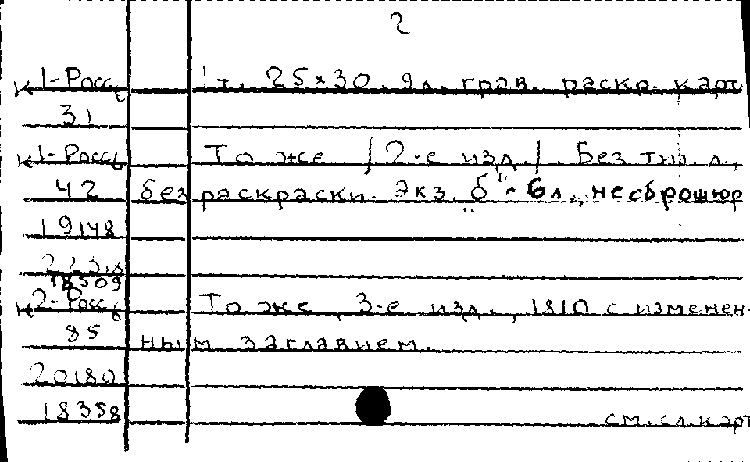 2
К 1-Росс 1 т. 25×30. 9 л. грав. раскр. карт
6
31
К 1-Росс То же /2-е изд./. Без тит. л.,
6
42 без раскраски. Экз. "б"- 6 л., несброшюр
19148
18509
К 2-Росс То же, 3-е изд., 1810 с изменен-
6
85 ным заглавием.
20180
18358 см. сл. карт